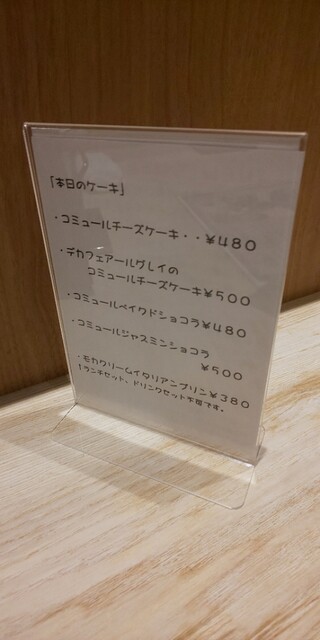 「本日のケーキ」
・コミュールチーズケーキ・・¥480
・デカフェアールグレイの
コミュールチーズケーキ¥500
・コミュールベイクドショコラ¥480
・コミュールジャスミンショコラ
¥500
・モカクリームイタリアンプリン¥380
ランチセット、ドリンクセット不可です。